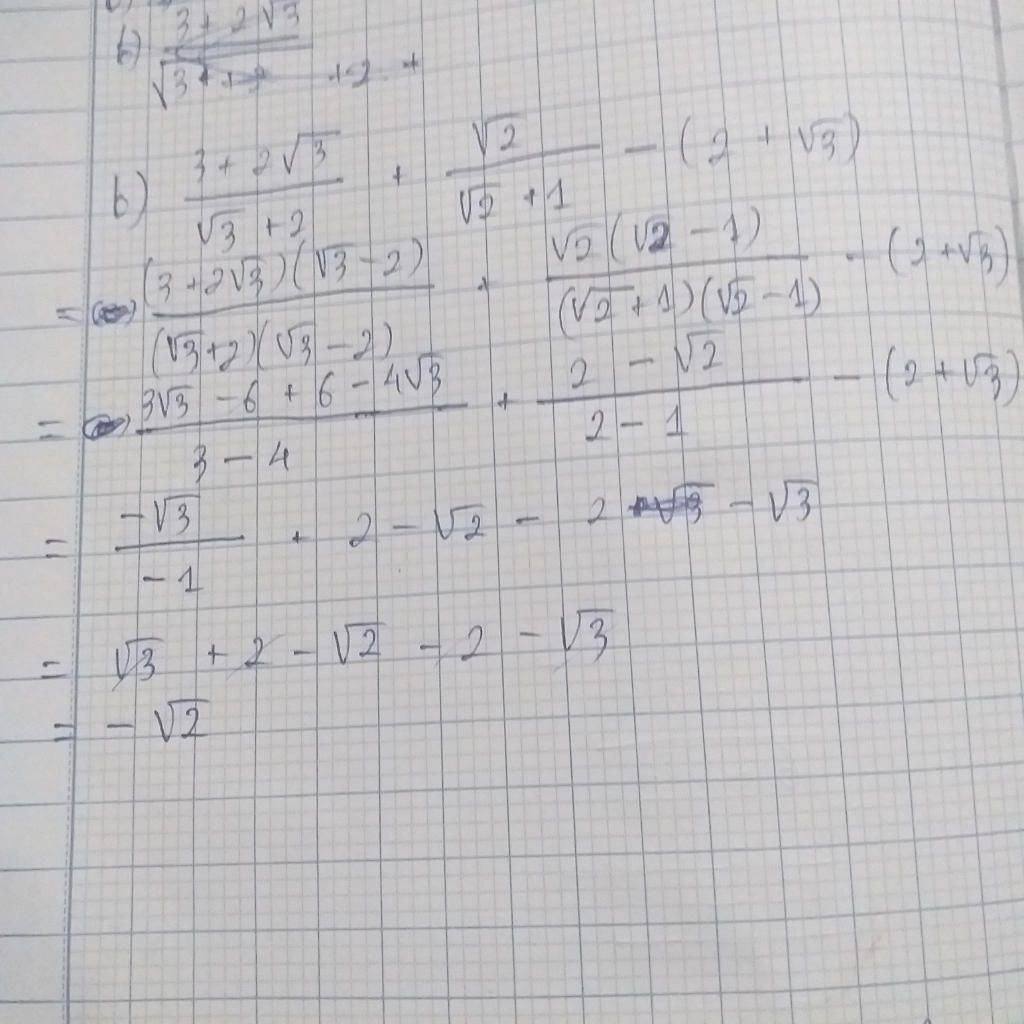 b) 3 + 2√3
√3 + +2 +
b) (3 + 2√3)/(√3 + 2) + √2/(√2 + 1) - (2 + √3)
= ((3 + 2√3)(√3 - 2))/((√3 + 2)(√3 - 2)) + (√2(√2 - 1))/((√2 + 1)(√2 - 1)) - (2 + √3)
= (3√3 - 6 + 6 - 4√3)/(3 - 4) + (2 - √2)/(2 - 1) - (2 + √3)
= (-√3)/(-1) + 2 - √2 - 2 - √3
= √3 + 2 - √2 - 2 - √3
= - √2